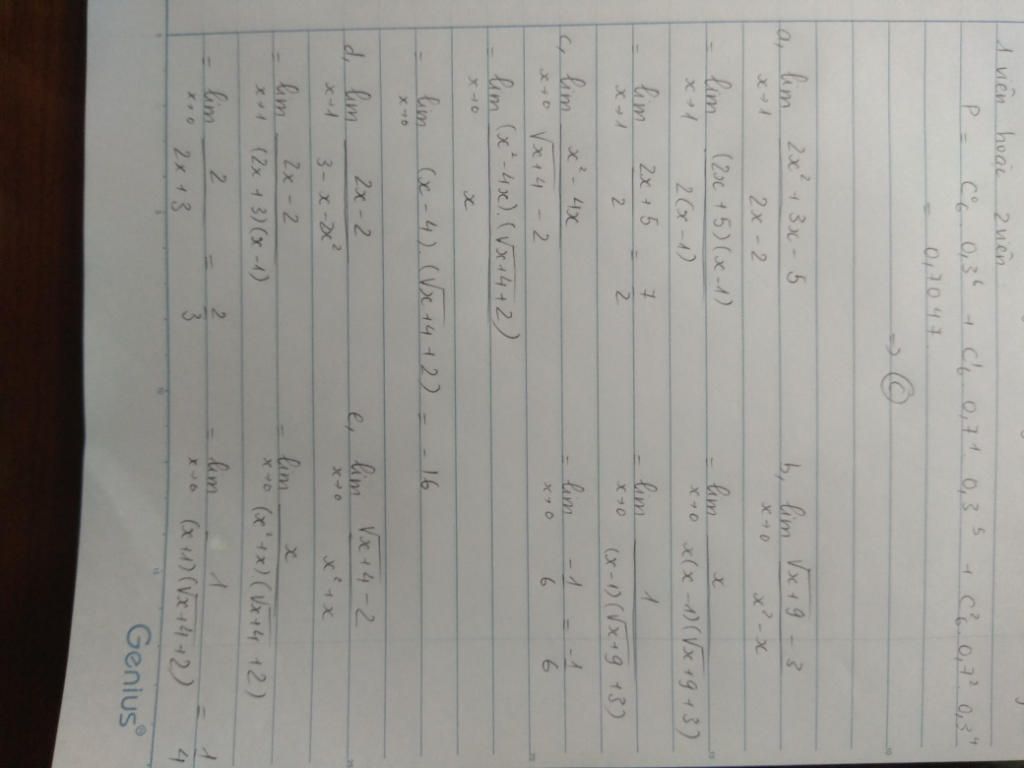 1 viên hoặc 2 viên
P = C⁰₆ . 0,3⁶ + C¹₆ . 0,7¹ . 0,3⁵ + C²₆ . 0,7² . 0,3⁴
= 0,07047
→ Ⓒ
a, lim x→1 (2x² + 3x - 5)/(2x - 2)
= lim x→1 ((2x + 5)(x - 1))/(2(x - 1))
= lim x→1 (2x + 5)/2 = 7/2
b, lim x→0 (√(x+9) - 3)/(x² - x)
= lim x→0 x/(x(x - 1)(√(x+9) + 3))
= lim x→0 1/((x-1)(√(x+9) + 3))
= lim x→0 -1/6 = -1/6
c, lim x→0 (x² - 4x)/(√(x+4) - 2)
= lim x→0 ((x² - 4x).(√(x+4) + 2))/x
= lim x→0 (x - 4).(√(x+4) + 2) = -16
d, lim x→1 (2x - 2)/(3 - x - 2x²)
= lim x→1 (2x - 2)/((2x + 3)(x - 1))
= lim x→0 2/(2x + 3) = 2/3
e, lim x→0 (√(x+4) - 2)/(x² + x)
= lim x→0 x/((x² + x)(√(x+4) + 2))
= lim x→0 1/((x+1)(√(x+4) + 2)) = 1/4
Genius